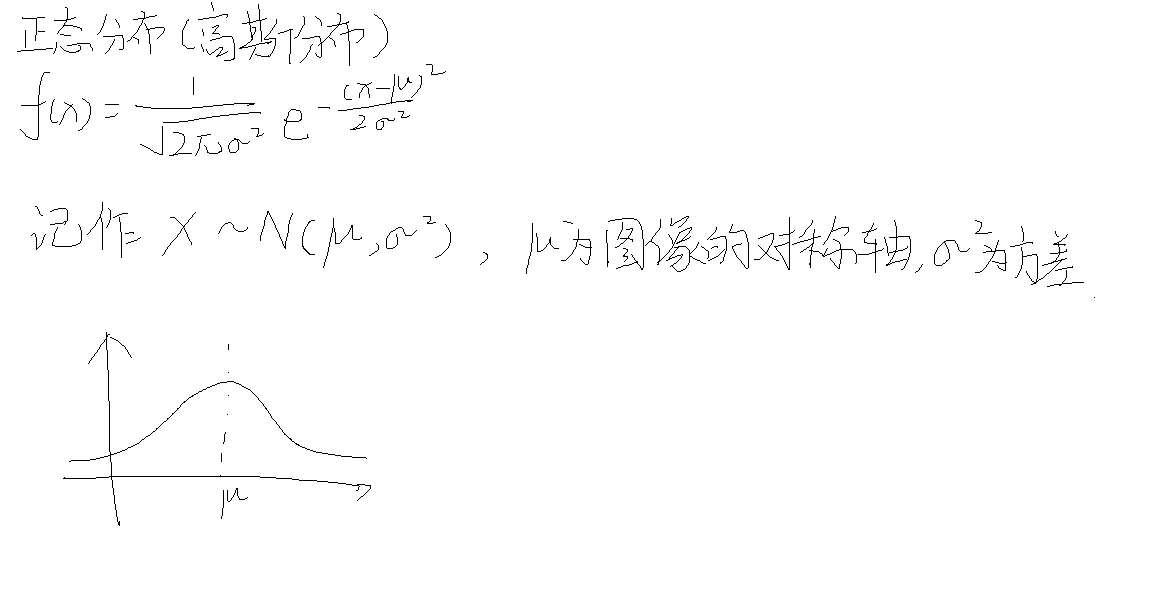 正态分布(高斯分布)
f(x) = 1/√(2πσ²) e^(-(x-μ)²/(2σ²))
记作 X ~ N(μ,σ²), μ为图像的对称轴,σ²为方差.
μ